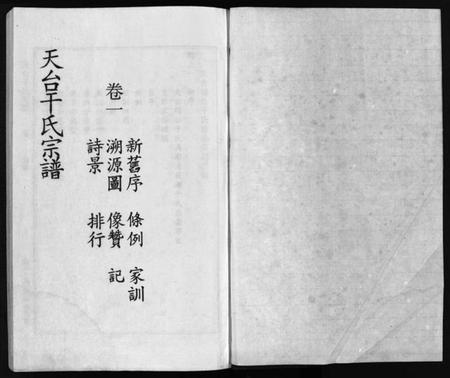 卷一
新舊序 條例 家訓
溯源圖 像贊 記
詩景 排行
天台干氏宗譜